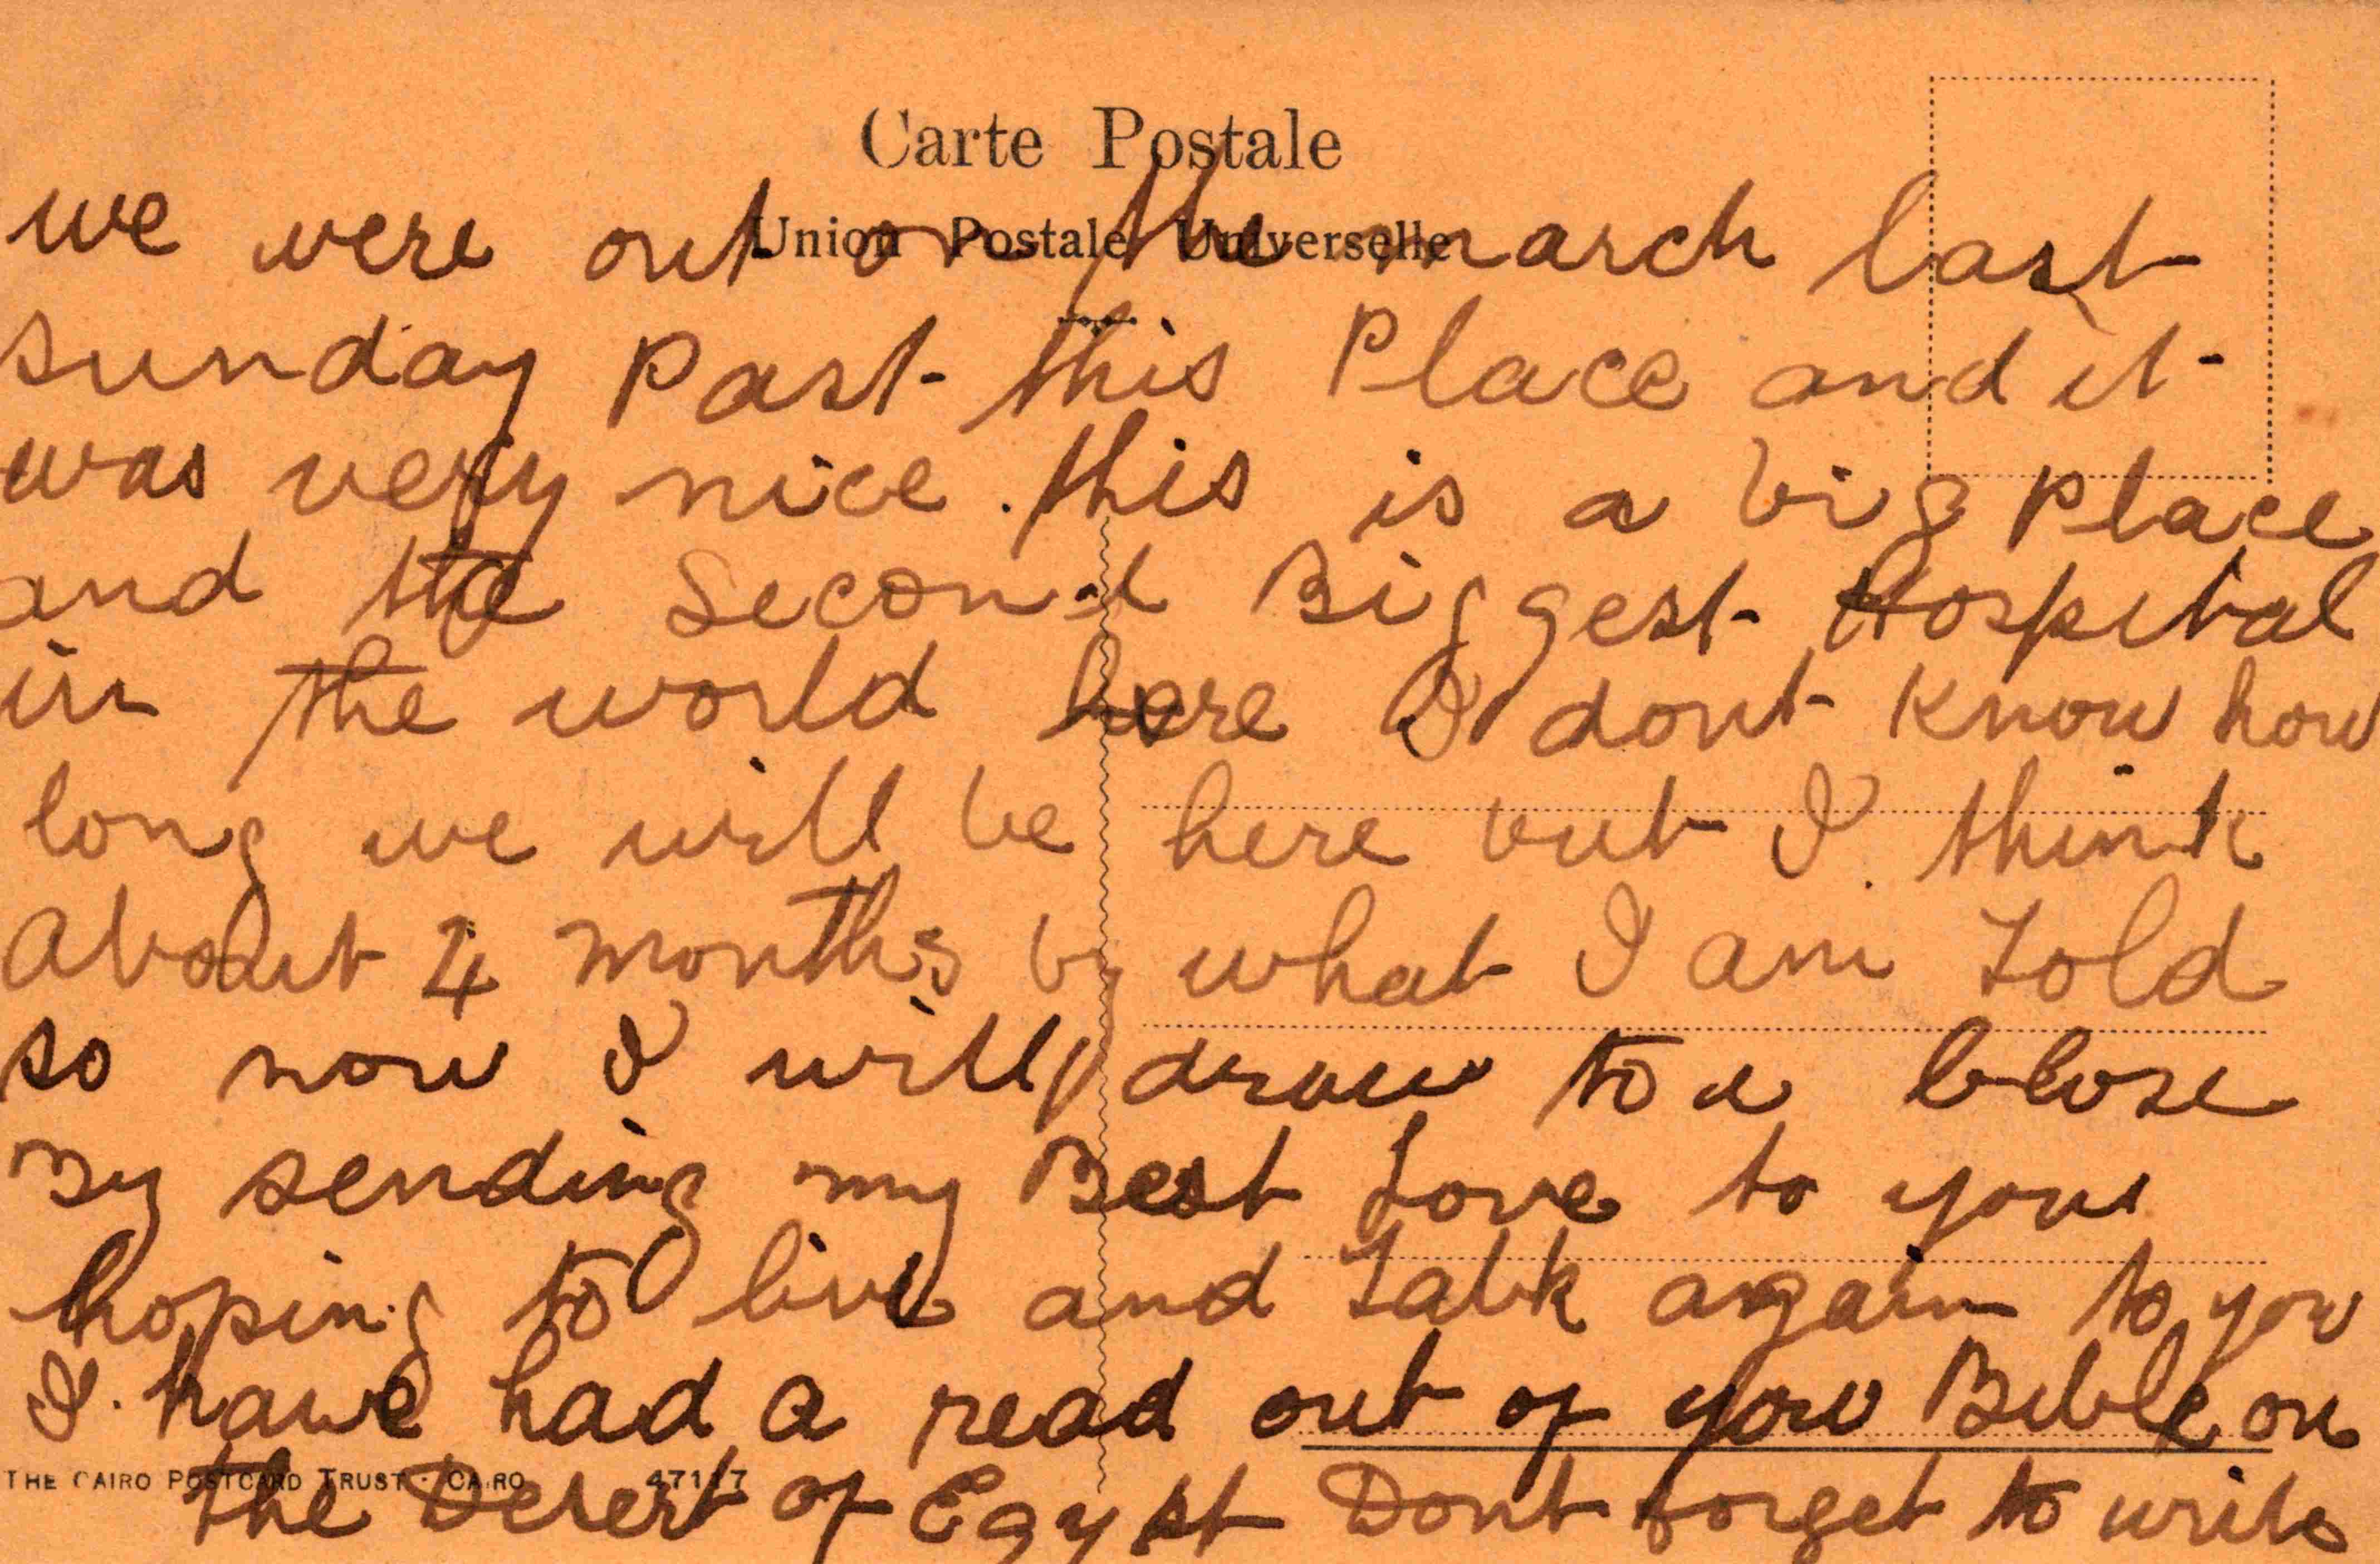 Carte Postale
Union Postale Universelle
we were out on the march last
sunday Past this Place and it
was very nice. this is a big Place
and the Second Biggest Hospital
in the world here I dont Know how
long we will be here but I think
about 4 months by what I am Told
so now I will draw to a close
By sending my Best Love to you
hoping to live and Talk again to you
I have had a read out of your Bible on
THE CAIRO POSTCARD TRUST · CAIRO 47117
the Desert of Egypt Dont forget to write